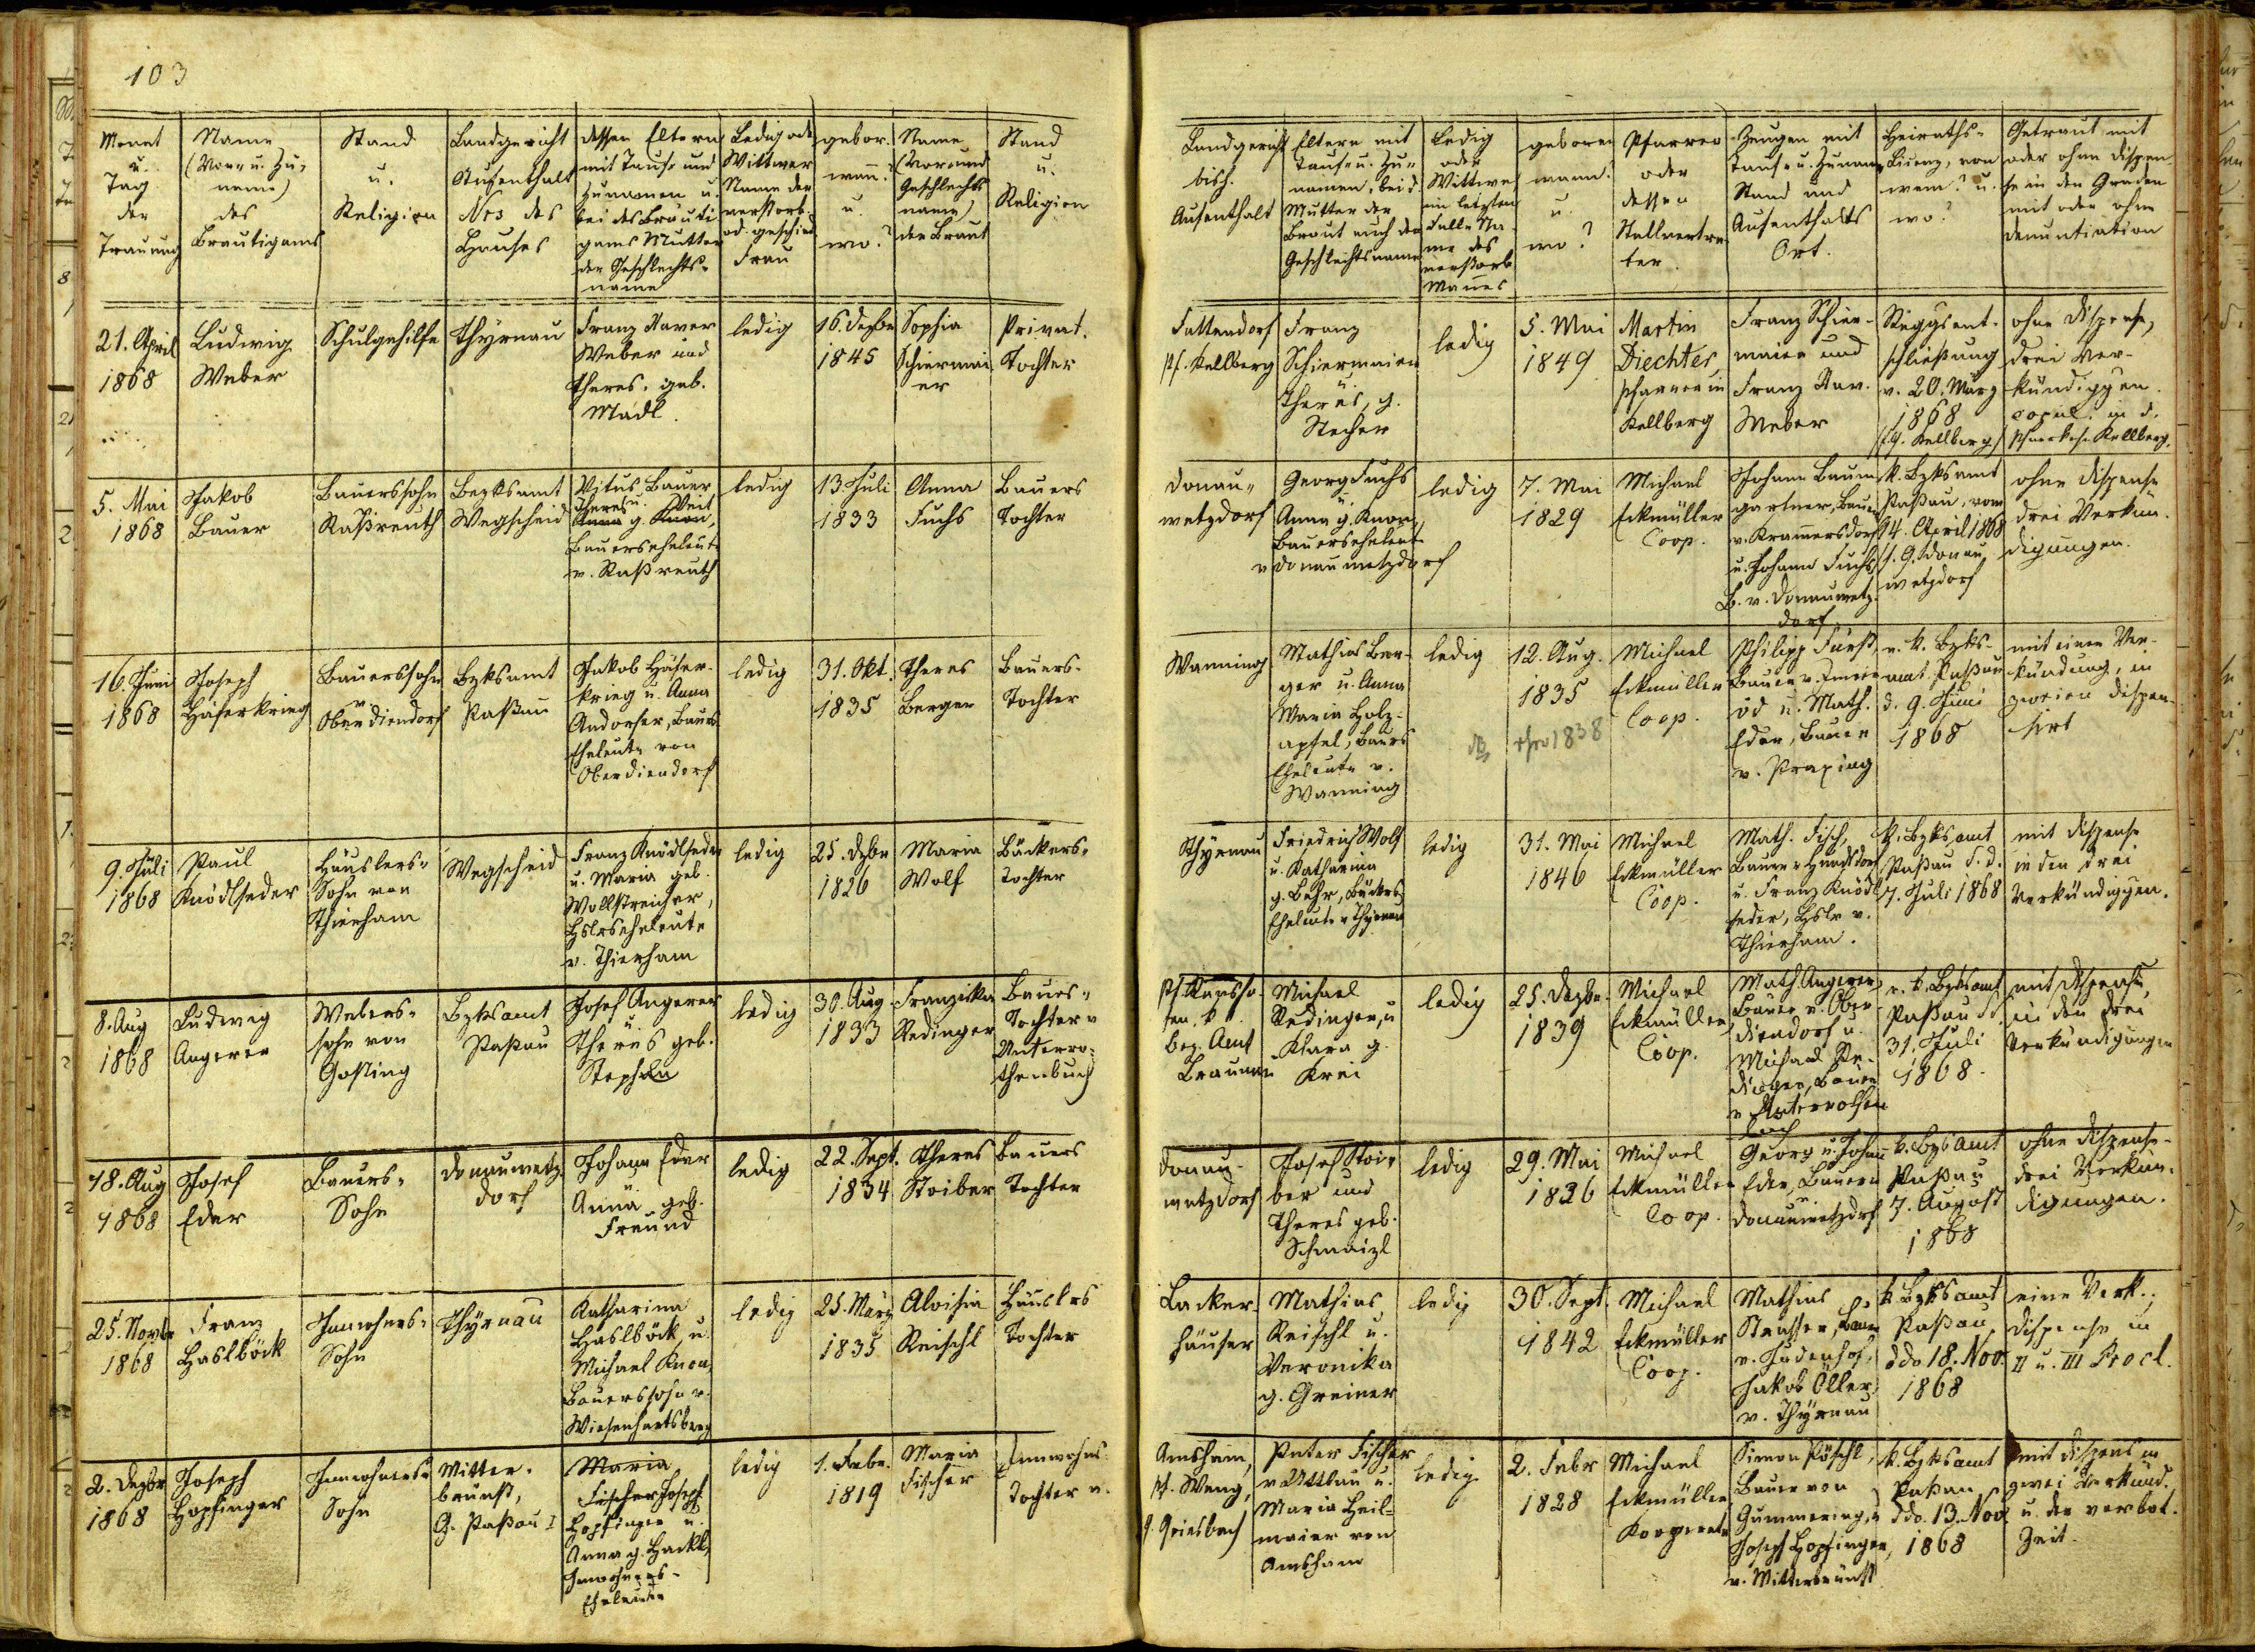 103
Monat
u.
Tag
der
Trauung
Name
(Vor- u. Zu-
name)
des
Bräutigams
Stand
u.
Religion
Landgericht
Aufenthalt
Nro des
Hauses
dessen Eltern
mit Tauf- und
Zunamen u.
bei des Bräuti
gams Mutter
der Geschlechts-
name
Ledig od
Wittwer
Name der
verstorb.
od. geschied
Frau
gebor.
wann?
u.
wo?
Name
(Vor und
Geschlechts
name)
der Braut
Stand
u.
Religion
21. April
1868
Ludwig
Weber
Schulgehilfe
Thyrnau
Franz Xaver
Weber und
Theres, geb.
Mädl.
ledig
16. Dezbr
1845
Sophia
Schiermai
er
Privat.
Tochter
5. Mai
1868
Jakob
Bauer
Bauerssohn
Raßreuth
Bezksamt
Wegscheid
Vitus Bauer
Theres u. Veit
Anna g. Knon,
Bauerseheleute
v. Raßreuth
ledig
13 Juli
1833
Anna
Fuchs
Bauers
Tochter
16. Juni
1868
Joseph
Häferkrieg
Bauerssohn
v
Oberdiendorf
Bzksamt
Paßau
Jakob Häfer-
krieg u. Anna
Andorfer, Baurs
Eheleute von
Oberdiendorf
ledig
31. Okt.
1835
Theres
Berger
Bauers-
Tochter
9. Juli
1868
Paul
Knödlseder
Häuslers-
Sohn von
Thierham
Wegscheid
Franz Knödlseder
u. Maria geb.
Wollstreicher,
Hslrseheleute
v. Thierham
ledig
25. Dzbr
1826
Maria
Wolf
Bäckers-
Tochter
8. Aug
1868
Ludwig
Angerer
Webers-
sohn von
Gosting
Bzksamt
Paßau
Josef Angerer
u.
Theres geb.
Stephan
ledig
30. Aug
1833
Franziska
Redinger
Bauers-
Tochter v
Unterro-
thenbuch
18. Aug
1868
Josef
Eder
Bauers-
Sohn
Donauwetz
dorf
Johann Eder
u
Anna geb.
Freund
ledig
22. Sept.
1834
Theres
Stoiber
Bauers
Tochter
25. Novbr
1868
Franz
Haslböck
Inwohners-
Sohn
Thyrnau
Katharina
Haslböck u.
Michael Knon,
Bauerssohn v.
Wiesenhartsberg
ledig
25. März
1835
Aloisia
Reischl
Häuslrs
Tochter
2. Dezbr
1868
Joseph
Hopfinger
Inwohners-
Sohn
Mitter-
brünst,
G. Paßau I
Maria
Fischer Joseph
Hopfinger u.
Anna g. Hackl,
Inwohners-
Eheleute
ledig
1. Febr.
1819
Maria
Fischer
Inwohnrs
Tochter v.
Landgericht
bish.
Aufenthalt
Eltern mit
Tauf- u. Zu-
namen, bei d
Mutter der
Braut auch der
Geschlechtsname
Ledig
oder
Wittwe,
im letzten
Falle Na-
me des
verstorb
Mannes
geboren
wann?
u.
wo?
Pfarrer
oder
dessen
Stellvertre
ter.
Zeugen mit
Tauf- u. Zunam
Stand und
Aufenthalts
Ort.
Heiraths-
Lizenz, von
wem? u.
wo?
Getraut mit
oder ohne Dispen
se in den Graden
mit oder ohne
Denuntiation
Fattendorf
Pf. Kellberg
Franz
Schiermaier
Theres, g.
Stecher
ledig
5. Mai
1849
Martin
Diechter
Pfarrer in
Kellberg
Franz Schier-
maier und
Franz Xav.
Weber
Reggsent-
schließung
v. 20. März
1868
(Pf. Kellberg)
ohne Dispense,
drei Ver-
kündiggen.
copul. in d.
Pfarrk. Kellberg.
Donau-
wetzdorf
Georg Fuchs
u
Anna g. Knon,
Bauerseheleute
v Donauwetzdorf
ledig
7. Mai
1829
Michael
Eckmüller
Coop.
Johann Baum
gartner, Bauer
v. Kramersdorf
u. Johann Fuchs
B. v. Donauwetz-
dorf
k. Bzksamt
Paßau, vom
14. April 1868
f. G. Donau
wetzdorf
ohne Dispense
drei Verkün-
digungen.
Wanning
Mathias Ber-
ger u. Anna
Maria Holz-
apfel, Baurs
Eheleute v.
Wanning
ledig
12. Aug.
1835
1838
Michael
Eckmüller
Coop.
Philipp Fürst
Bauer v.
öd u. Math.
Eder, Bauer
v. Praxing
v. k. Bzks-
amt Paßau
d. 9. Juni
1868
mit einer Ver-
kündung, in
zweien dispen-
sirt
Thyrnau
Friedrich Wolf
u. Katharina
g. Behr, Bäckers
Eheleute v Thyrnau
ledig
31. Mai
1846
Michael
Eckmüller
Coop.
Math. Fisch,
Bauer v Hundsdorf
u. Franz Knödl
seder, Hslr v.
Thierham.
k. Bzksamt
Paßau d. d.
7. Juli 1868
mit Dispense
in den drei
Verkündiggen.
bez. Amt
Braunau
Michael
Redinger, u
Klara g.
Krei
ledig
25. Dezbr.
1839
Michael
Eckmüller
Coop.
Math Angerer,
Bauer v. Ober
diendorf u.
Michael Re-
dinger, Bauer
v Unterrothen
buch
v. k. Bzksamt
Paßau dd.
31. Juli
1868.
mit Dispense,
in den drei
Verkündigungen
Donau-
wetzdorf
Josef Stoi-
ber und
Theres geb.
Schmaizl
ledig
29. Mai
1836
Michael
Eckmüller
Coop.
Georg u. Johann
Eder, Bauern
v.
Donauwetzdorf
k. Bzksamt
Paßau
7. August
1868
ohne Dispense-
drei Verkün-
digungen.
Lacker
häuser
Mathias
Reischl u.
Veronika
g. Greiner
ledig
30. Sept.
1842
Michael
Eckmüller
Coop.
Mathias
Strasser, Bauer
v. Judenhof,
Jakob Öller,
v. Thyrnau
k. Bzksamt
Paßau
ddo 18. Nov.
1868
eine Verk.,
Dispense in
II u. III Procl.
Amsham,
Pf. Weng,
G. Griesbach
Peter Fischer
v Uttlau u.
Maria Heil-
maier von
Amsham
ledig
2. Febr
1828
Michael
Eckmüller
Kooperat
Simon Pöschl,
Bauer von
Gummering, u
Joseph Hopfinger,
v. Mitterbrünst
k. Bzksamt
Paßau,
ddo. 13. Nov
1868
mit Dispens in
zwei Verkünd.
u. der verbot.
Zeit.